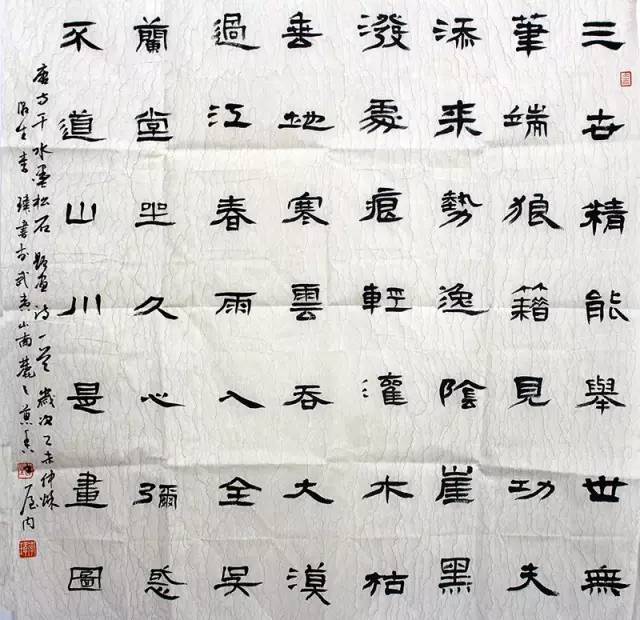 三世精能舉世無
筆端狼籍見功夫
添來勢逸陰崖黑
潑處痕輕灌木枯
垂地寒雲吞大漠
過江春雨入全吳
蘭堂坐久心彌惑
不道山川是畫圖
唐方干水墨松石題畫詩一首 歲次乙未仲秋
生李書於武夷山南麓